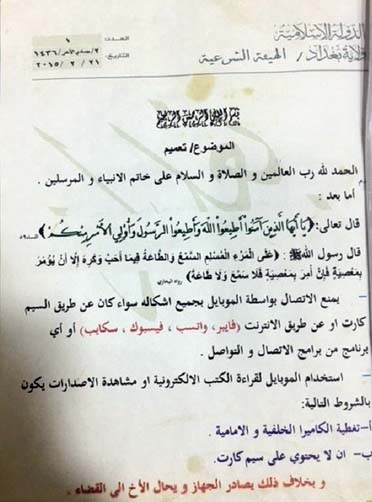 الدولة الاسلامية
ولاية بغداد / الهيئة الشرعية
العدد: ١
التاريخ: ٢/جمادي الآخر/١٤٣٦
٢٠١٥ / ٢ / ٢١
بسم الله الرحمن الرحيم
الموضوع/ تعميم
الحمد لله رب العالمين و الصلاة و السلام على خاتم الانبياء و المرسلين .
أما بعد :
قال تعالى: ﴿يَا أَيُّهَا الَّذِينَ آمَنُوا أَطِيعُوا اللَّهَ وَأَطِيعُوا الرَّسُولَ وَأُولِي الْأَمْرِ مِنكُمْ﴾
قال رسول الله ﷺ : (عَلَى المَرْءِ المُسْلِمِ السَّمْعُ وَالطَّاعَةُ فِيمَا أَحَبَّ وَكَرِهَ إِلَّا أَنْ يُؤْمَرَ
بِمَعْصِيَةٍ فَإِنْ أُمِرَ بِمَعْصِيَةٍ فَلَا سَمْعَ وَلَا طَاعَةَ) رواه البخاري
. يمنع الاتصال بواسطة الموبايل بجميع اشكاله سواء كان عن طريق السيم
كارت او عن طريق الانترنت (فايبر، واتسب ، فيسبوك ، سكايب) أو أي
برنامج من برامج الاتصال و التواصل .
. استخدام الموبايل لقراءة الكتب الالكترونية او مشاهدة الاصدارات يكون
بالشروط التالية:
أ- تغطية الكاميرا الخلفية و الامامية .
ب- ان لا يحتوي على سيم كارت.
و بخلاف ذلك يصادر الجهاز و يحال الأخ الى القضاء .